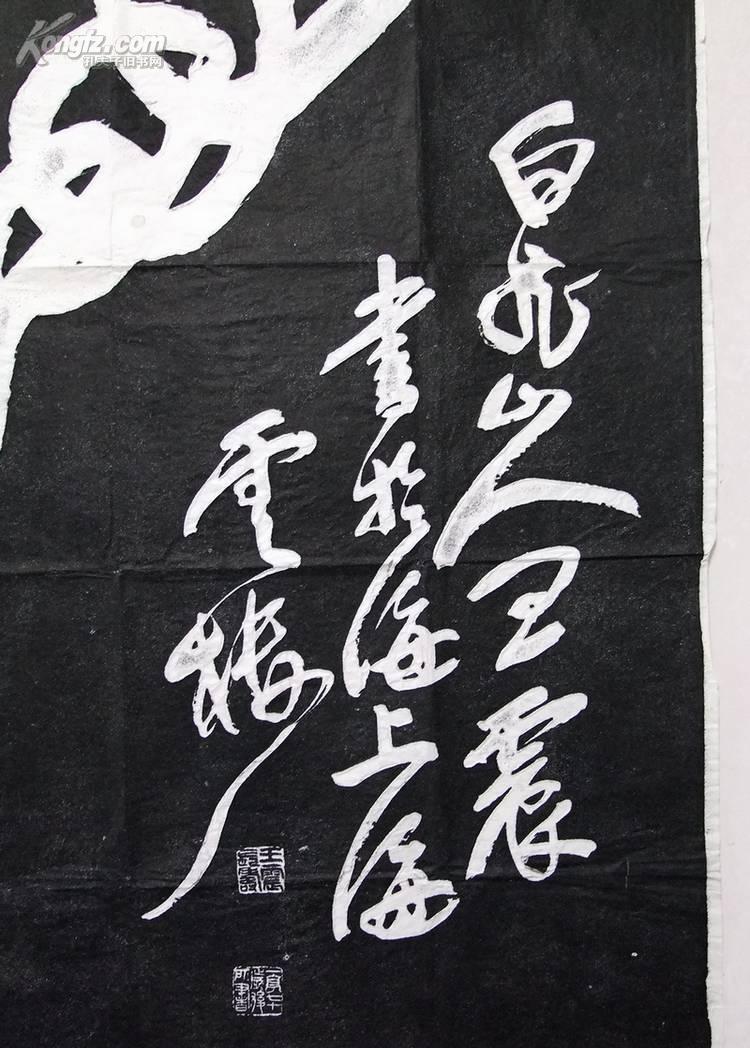 Kongfz.com
孔夫子旧书网
白龙山人王震
書於海上海
雲樓
王震